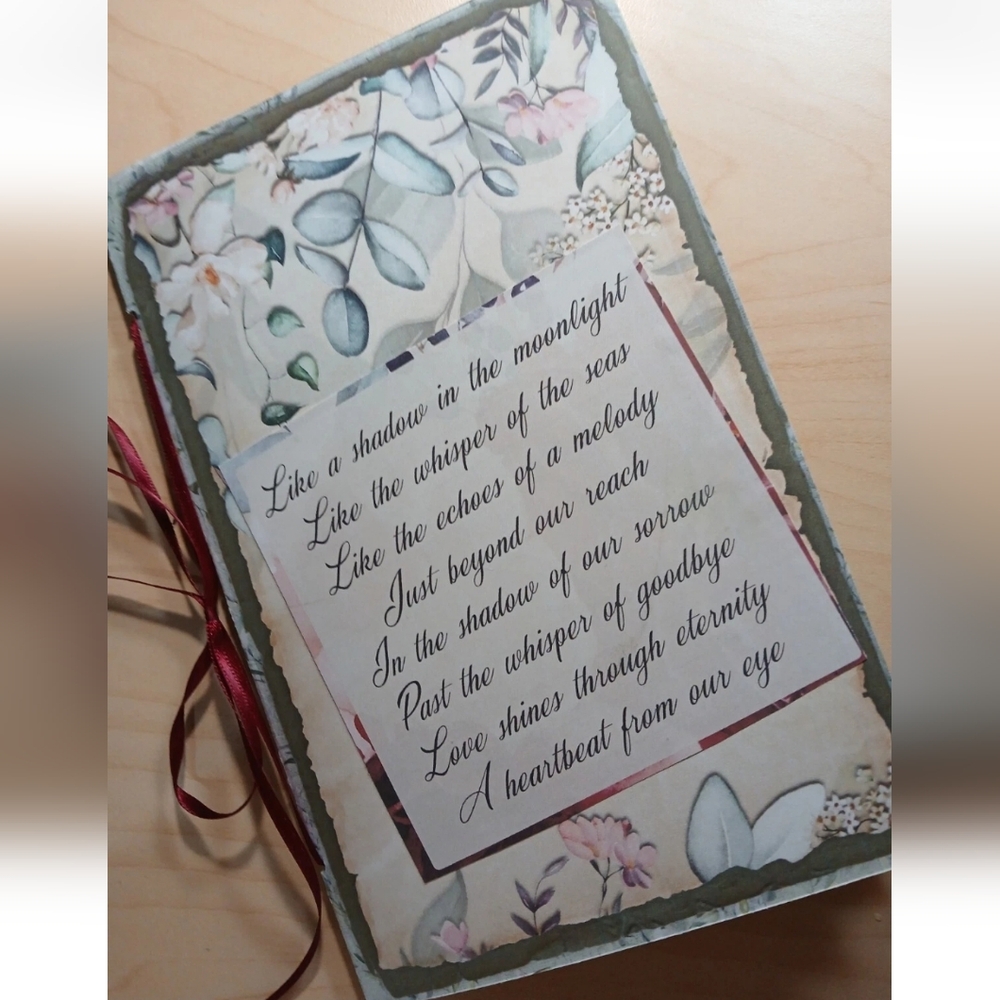 Like a shadow in the moonlight
Like the whisper of the seas
Like the echoes of a melody
Just beyond our reach
In the shadow of our sorrow
Past the whisper of goodbye
Love shines through eternity
A heartbeat from our eye